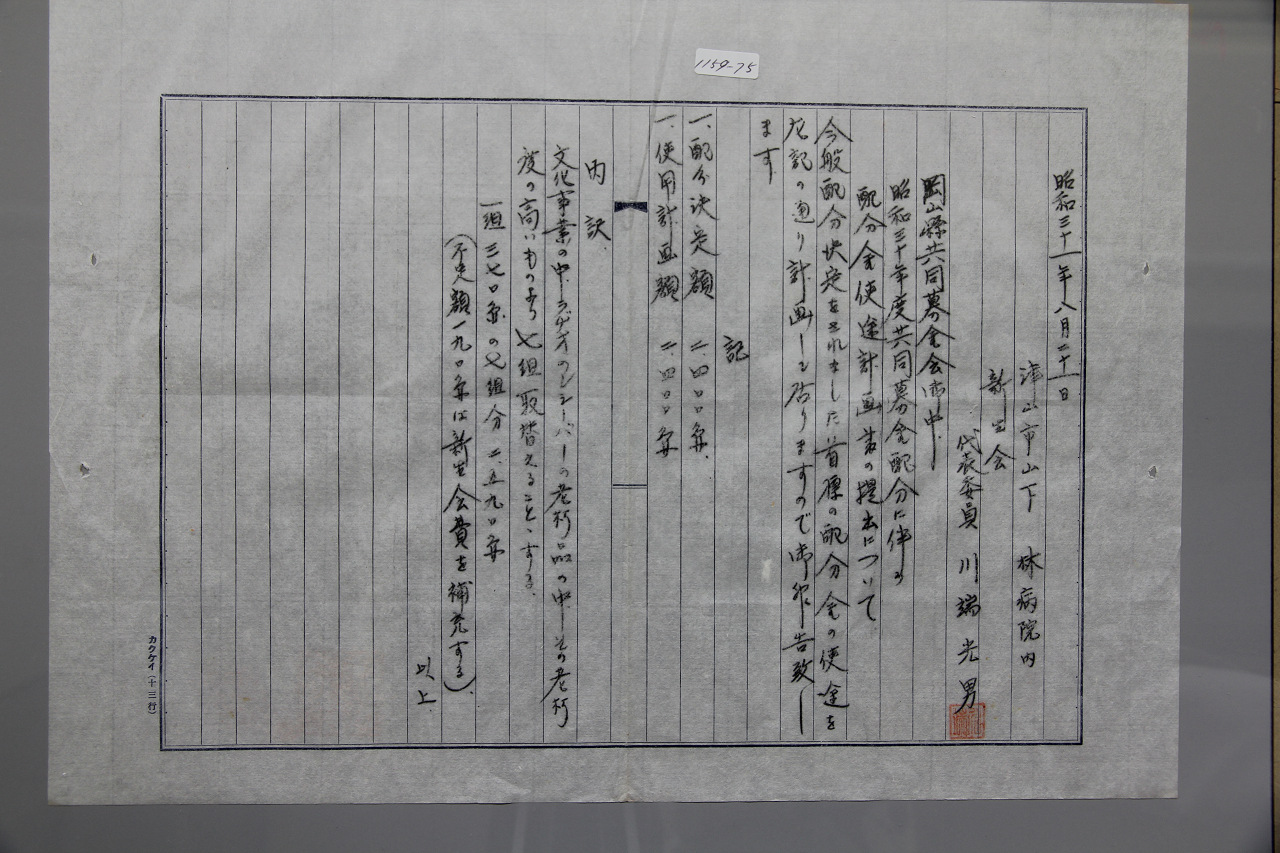 1159-75
昭和三十一年八月二十一日
津山市山下 林病院内
新生会
代表委員 川端光男
岡山縣共同募金会御中
昭和三十年度共同募金配分に伴う
配分金使途計画書の提出について
今般配分決定をされました首題の配分金の使途を
左記の通り計画して居りますので御報告致し
ます
記
一、配分決定額 二、四〇〇円
一、使用計画額 二、四〇〇円
内訳
文化事業の中ラヂオのレシーバーの老朽品の中その老朽
度の高いものより七組取替えることゝする、
一組三七〇円の七組分 二、五九〇円
(不足額一九〇円は新生会費を補充する)
以上
カクケイ(十三行)